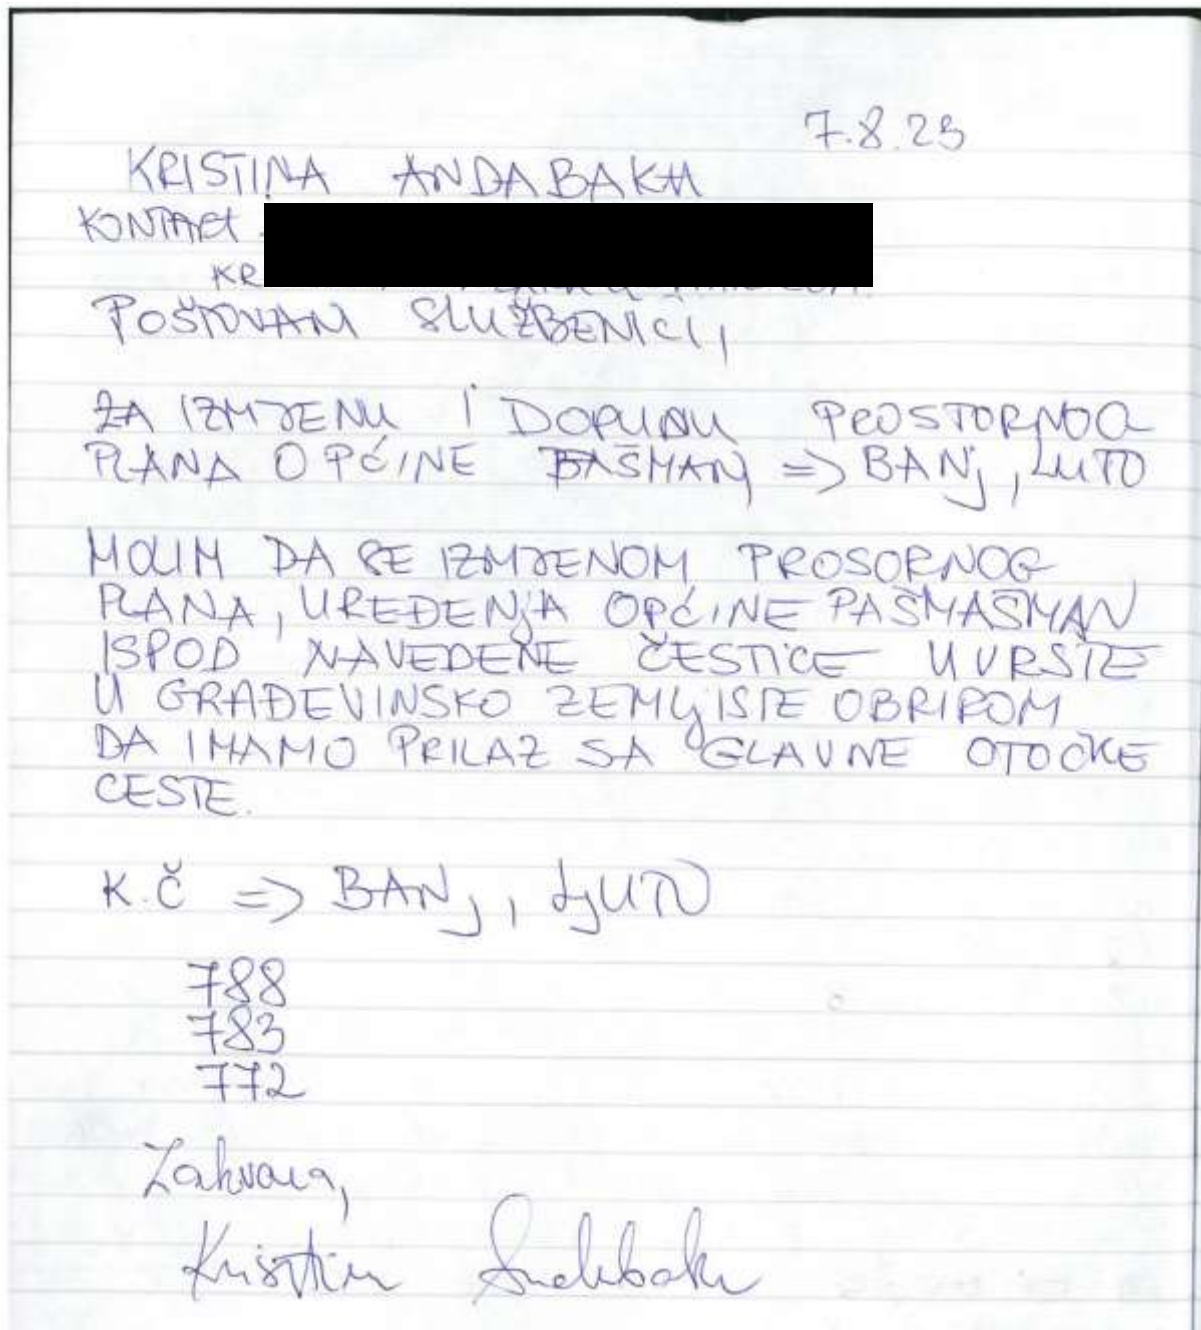 7.8.23
KRISTINA ANDABAKA
KONTAKT
KR
POŠTOVANI SLUŽBENICI,
ZA IZMJENU I DOPUNU PROSTORNOG
PLANA OPĆINE PAŠMAN => BANJ, LJUTO
MOLIM DA SE IZMJENOM PROSORNOG
PLANA, UREĐENJA OPĆINE PAŠMAŠMAN
ISPOD NAVEDENE ČESTICE UVRSTE
U GRAĐEVINSKO ZEMLJISTE OBRIROM
DA IMAMO PRILAZ SA GLAVNE OTOČKE
CESTE.
K.Č => BANJ, LJUTO
788
783
772
Zahvala,
Kristina Andabaka